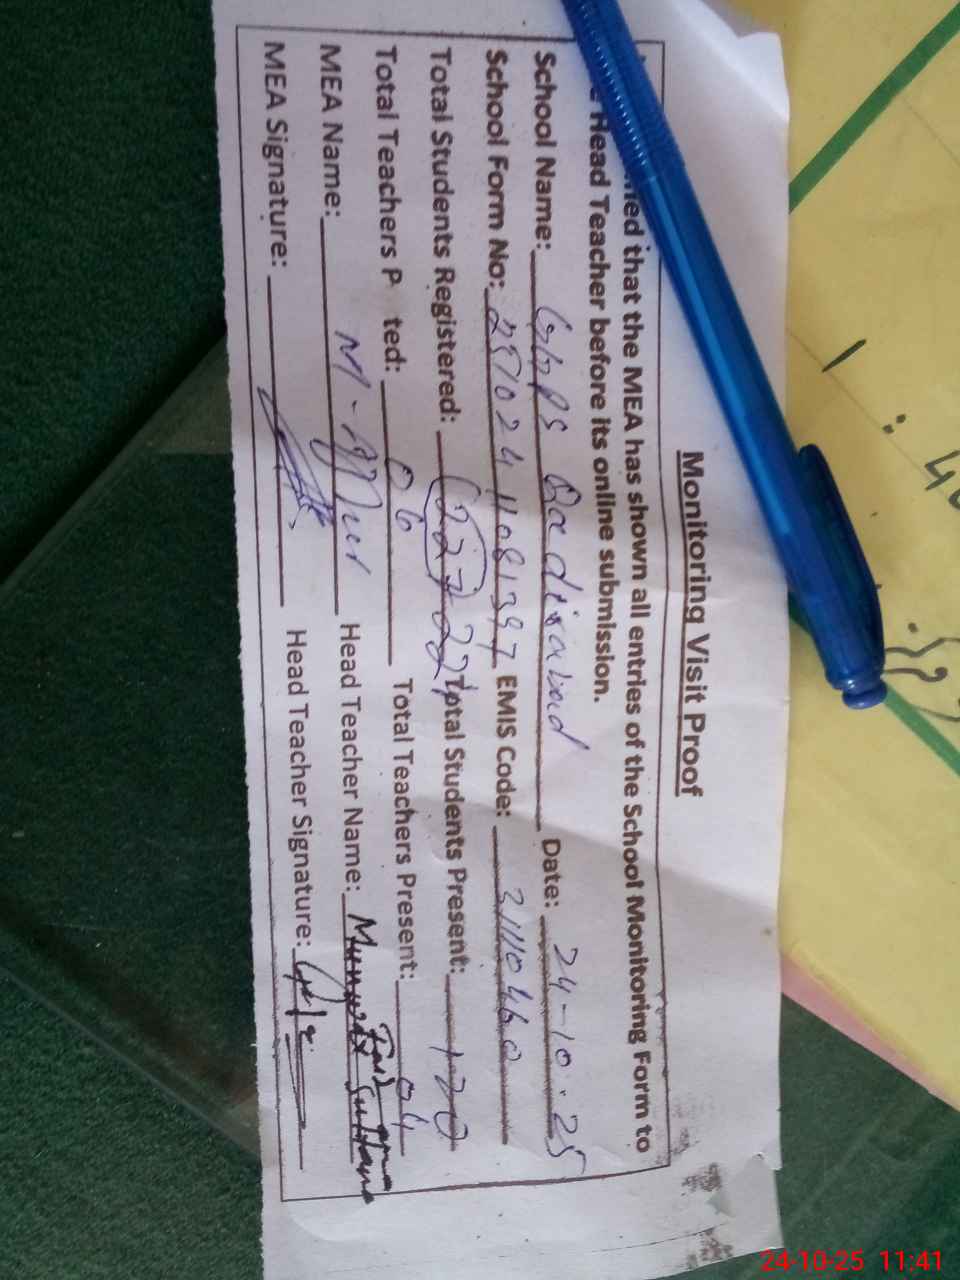 Monitoring Visit Proof
ied that the MEA has shown all entries of the School Monitoring Form to
Head Teacher before its online submission.
School Name: GGPS Qadirabad Date: 24-10-25
School Form No: 2571024 11081397 EMIS Code: 31110460
Total Students Registered: 227 227 Total Students Present: 120
Total Teachers P ted: 06 Total Teachers Present: 04
MEA Name: M- Head Teacher Name: Sultana
MEA Signature: Head Teacher Signature:
24-10-25 11:41